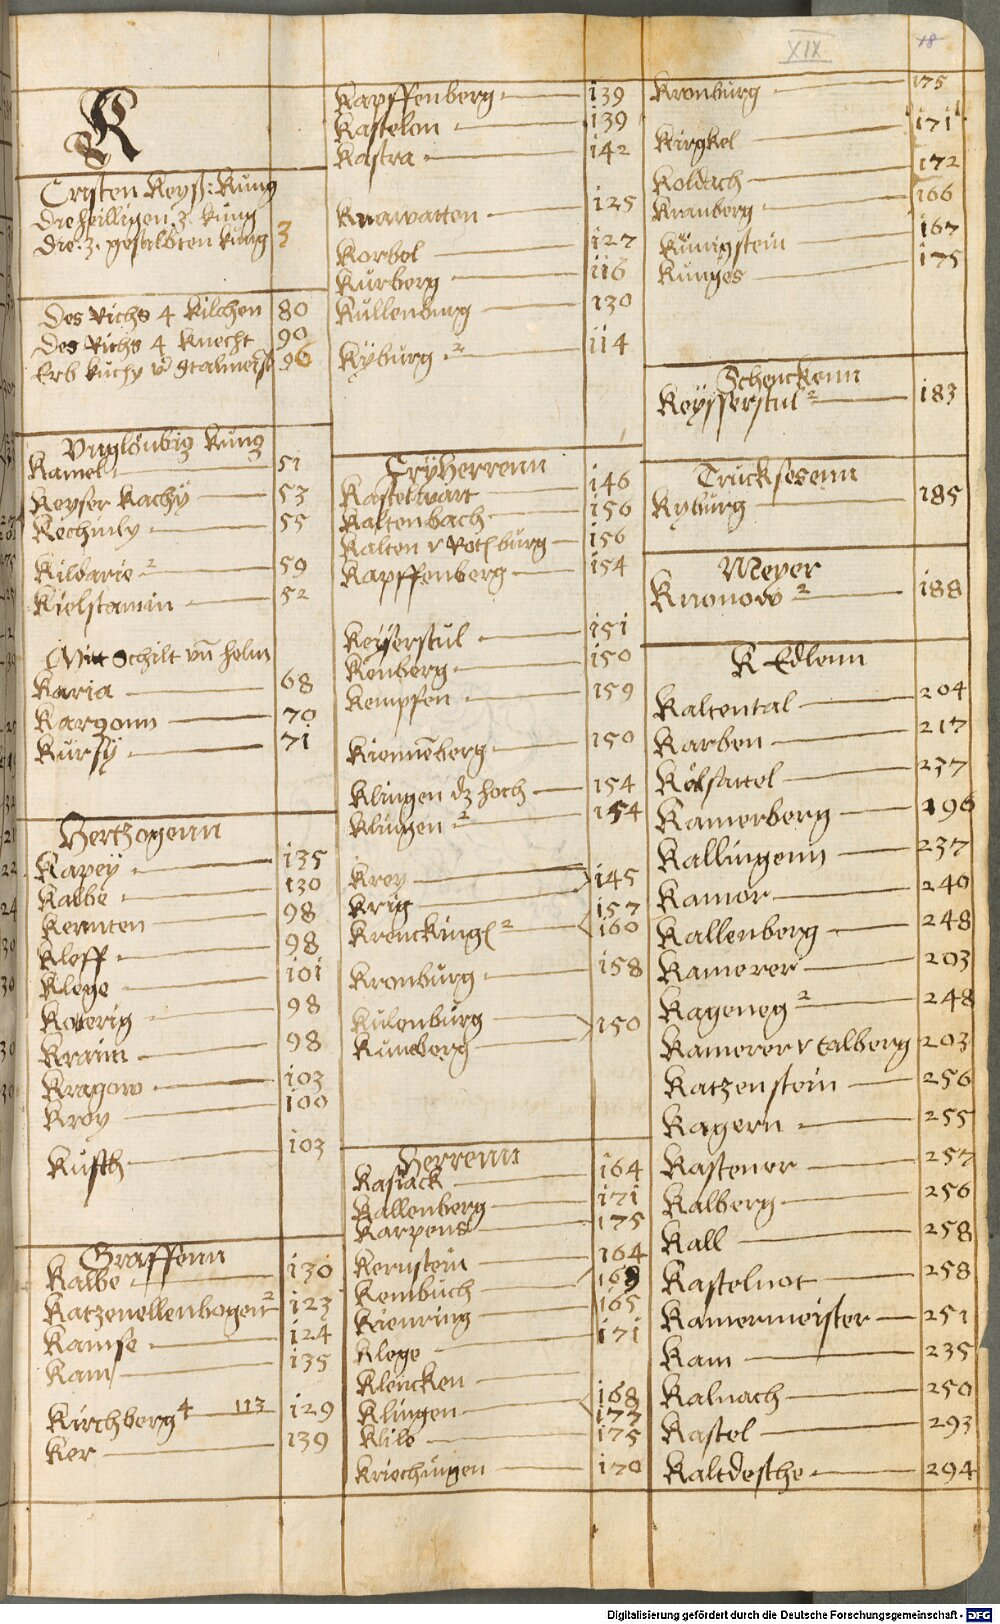 XIX
18
K
Cristen Keyß: Kung
Die heilligen .3. kung
Die .3. gestalöten kung 3
Des Richs 4 kilchen 80
Des Richs 4 knecht 90
Erb kuchy vnd stalmeist 96
Vnglöubig kung
Kamel 51
Keyser Kachy 53
Kechmly 55
Kilbarie 2 59
Kielstamin 52
Mitt Schilt vn helm
Karia 68
Kargonn 70
Kursy 71
Hertzogenn
Kapey 135
Kalbe 130
Kernten 98
Kleff 98
Klege 101
Koterig 98
Kraim 98
Kragow 103
Kroy 100
Kusth 103
Graffenn
Kalbe 130
Katzenellenbogen 2 123
Kamse 124
Kam 135
Kirchberg 4 113 129
Ker 139
Kapffenberg 139
Kastelon 139
Kastra 142
Krawatten 125
Korbol 127
Kurberg 116
Kullenburg 130
Kyburg .2 114
Fryherrenn
Kasteltwart 146
Kaltenbach 156
Kalten v Rotburg 156
Kapffenberg 154
Keyserstul 151
Kenberg 150
Kempfen 159
Kienneberg 150
Klingen dz hoch 154
Klingen 2 154
Krey 145
Krig 157
Krencking 2 160
Kronburg 158
Kulenburg 150
Kumberg
Herrenn
Kasiack 164
Kallenberg 171
Karpens 175
Kernstein 164
Kembuch 169
Kienring 165
Klege 171
Klencken
Klingen 168 177
Klilo 175
Kriechingen 170
Kronburg 175
Kirgkel 171
Koldach 172
Kranberg 166
Künigstein 167
Kunges 175
Schenckenn
Keysserstul 2 183
Trucksesenn
Kyburg 185
Meyer
Knonow 2 188
K Edlenn
Kaltental 204
Karben 217
Kelsattel 237
Kamerberg 196
Kallingenn 237
Kamor 240
Kallenberg 248
Kamerer 203
Kageneg 2 248
Kamerer v talberg 203
Katzenstein 256
Kagern 255
Kastener 257
Kalberg 256
Kall 258
Kastelnot 258
Kamermeister 251
Kam 235
Kalnach 250
Kastel 293
Kaltdesche 294
Digitalisierung gefördert durch die Deutsche Forschungsgemeinschaft - DFG